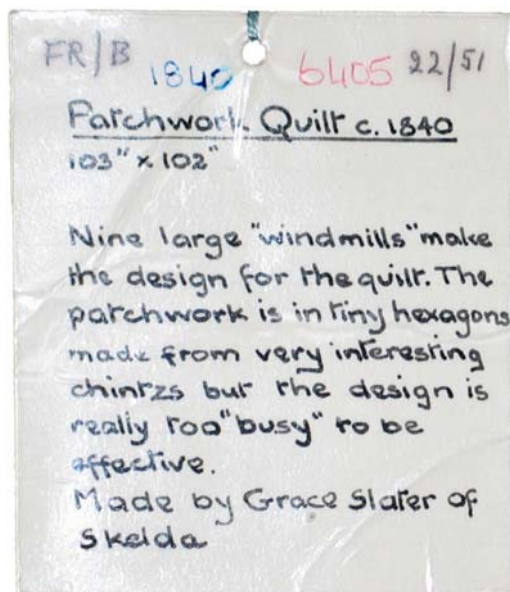 FR/B 1840 6405 22/51
Patchwork Quilt c. 1840
103" x 102"
Nine large "windmills" make
the design for the quilt. The
patchwork is in tiny hexagons
made from very interesting
chintzs but the design is
really too "busy" to be
effective.
Made by Grace Slater of
Skelda